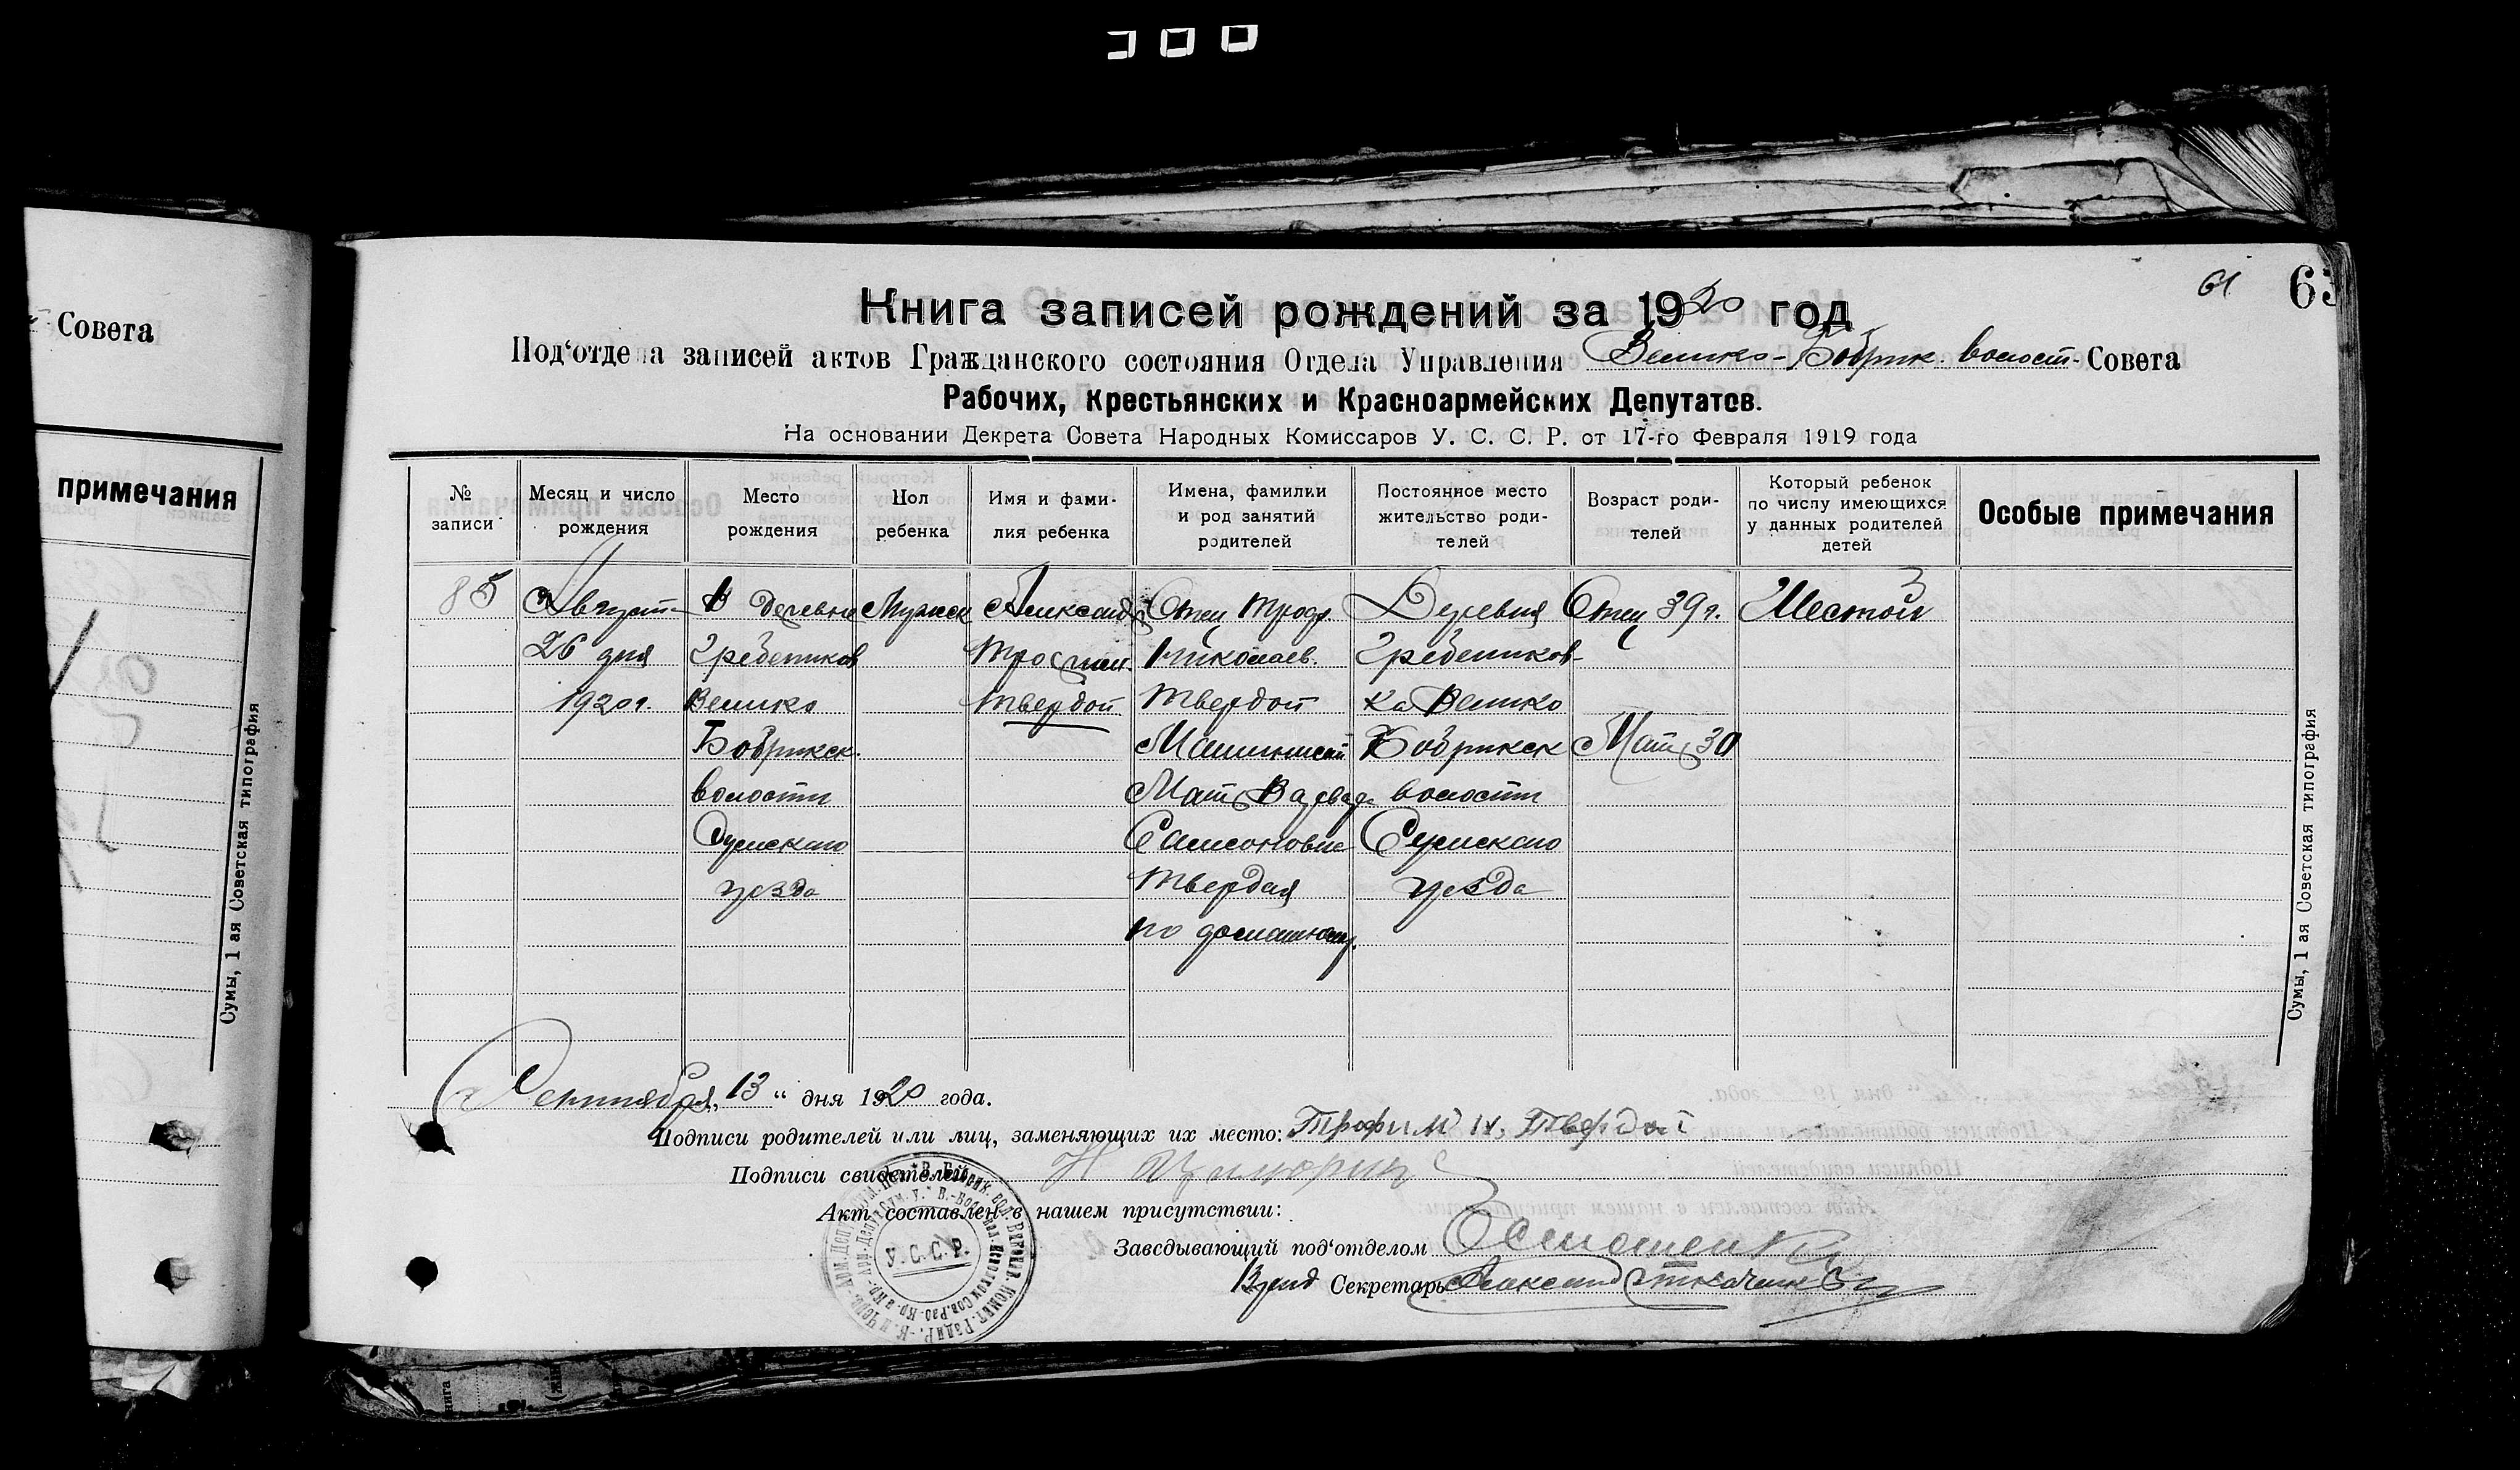 Совета
примечания
Сумы, 1 ая Советская типография
61
63
Книга записей рождений за 1920 год
Под‘отдела записей актов Гражданского состояния Отдела Управления Велико-Бобрик. волост. Совета
Рабочих, Крестьянских и Красноармейских Депутатов.
На основании Декрета Совета Народных Комиссаров У. С. С. Р. от 17-го Февраля 1919 года
№ записи
Месяц и число рождения
Место рождения
Пол ребенка
Имя и фами-
лия ребенка
Имена, фамилии
и род занятий
родителей
Постоянное место
жительство роди-
телей
Возраст роди-
телей
Который ребенок
по числу имеющихся
у данных родителей
детей
Особые примечания
85
Август
26 дня
1920 г.
В деревне
Гребеников
Велико
Бобрикск.
волости
Сумскаго
уезда
Мужск
Александр
Трофим.
Твердой
Отец Троф.
Николаев.
Твердой
Машинист
Мать Варвара
Самсоновна
Твердая
по домашнему.
Деревня
Гребеников-
ка Велико
Бобрикск
волости
Сумскаго
уезда
Отец 39 г.
Мать 30
Шестой
Сумы, 1 ая Советская типография
Сентября, 13 “ дня 1920 года.
Подписи родителей или лиц, заменяющих их место: Трофим Н. Твердой
Подписи свидетелей
Акт составлен в нашем присутствии:
Заведывающий под‘отделом
Врид Секретарь Александ Ткаченко
У. С. С. Р.